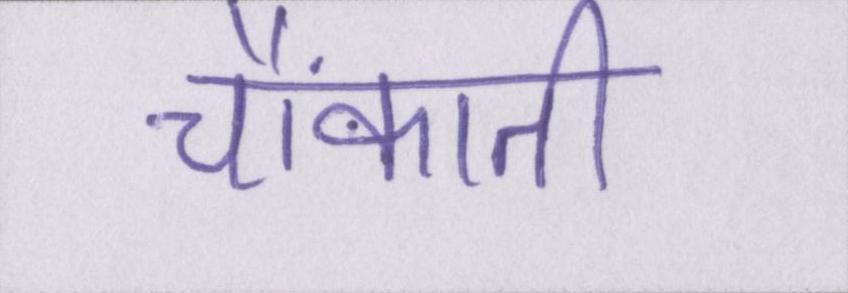 चौंकाती